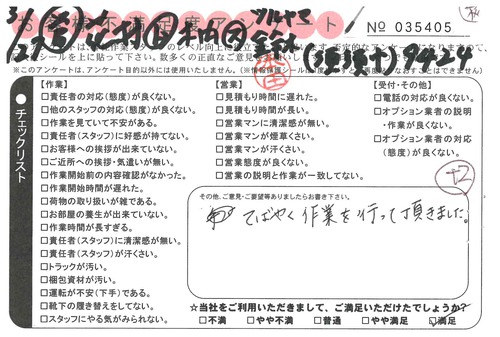 お客様不満足度アンケート
№ 035405
※このアンケートは、アンケート目的以外には使用いたしません。
94-24
チェックリスト
【作業】
□責任者の対応(態度)が良くない。
□他のスタッフの対応(態度)が良くない。
□作業を見ていて不安がある。
□責任者(スタッフ)に好感が持てない。
□お客様への挨拶が出来ていない。
□ご近所への挨拶・気遣いが無い。
□作業開始前の内容確認がなかった。
□作業開始時間が遅れた。
□荷物の取り扱いが雑である。
□お部屋の養生が出来ていない。
□作業時間が長すぎる。
□責任者(スタッフ)に清潔感が無い。
□責任者(スタッフ)が汗くさい。
□トラックが汚い。
□梱包資材が汚い。
□運転が不安(下手)である。
□靴下の履き替えをしてない。
□スタッフにやる気がみられない。
【営業】
□見積もり時間に遅れた。
□見積もり時間が長い。
□営業マンに清潔感が無い。
□営業マンが煙草くさい。
□営業マンが汗くさい。
□営業態度が良くない。
□営業の説明と作業が一致してない。
【受付・その他】
□電話の対応が良くない。
□オプション業者の説明
・作業が良くない。
□オプション業者の対応
(態度)が良くない。
その他、ご意見・ご要望等ありましたらお書き下さい。
てばやく作業を行って頂きました。
☆当社をご利用いただきまして、ご満足いただけたでしょうか?
□不満 □やや不満 □普通 □やや満足 ☑満足